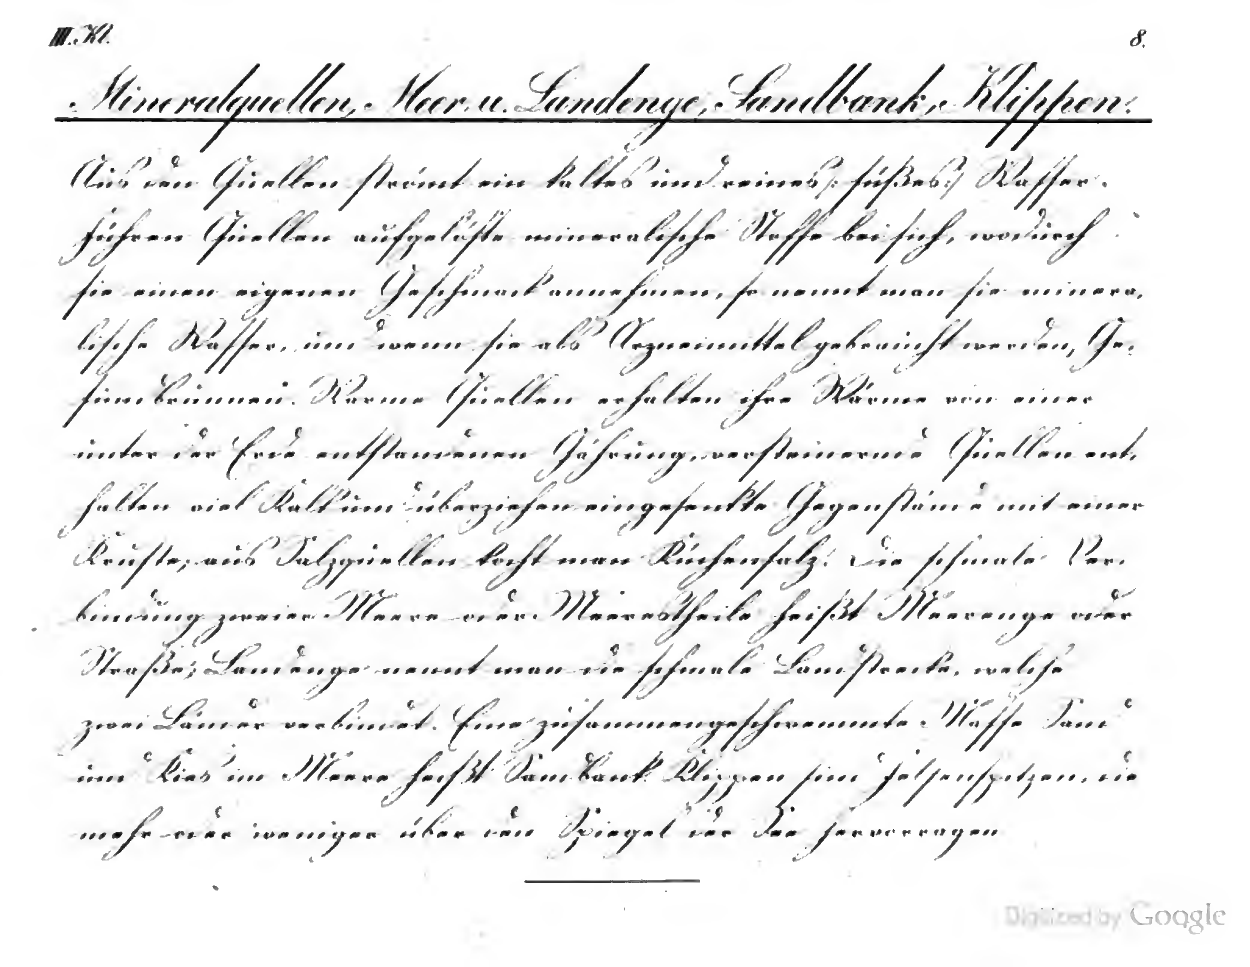 III. Kl.
8.
Mineralquellen, Meer u. Landenge, Sandbank, Klippen.
Aus den Quellen strömt ein kaltes und reines /: süßes :/ Wasser.
Führen Quellen aufgelöste mineralische Stoffe bei sich, wodurch
sie einen eigenen Geschmack annehmen, so nennt man sie minera-
lische Wasser, und wenn sie als Arzneimittel gebraucht werden, Ge-
sundbrunnen. Warme Quellen erhalten ihre Wärme von einer
unter der Erde entstandenen Gährung, versteinernde Quellen ent-
halten viel Kalk und überziehen eingesenkte Gegenstände mit einer
Kruste, aus Salzquellen kocht man Küchensalz. Die schmale Ver-
bindung zweier Meere oder Meerestheile heißt Meerenge oder
Straße; Landenge nennt man die schmale Landstrecke, welche
zwei Länder verbindet. Eine zusammengeschwemmte Masse Sand
und Kies im Meere heißt Sandbank. Klippen sind Felsenspitzen, die
mehr oder weniger über den Spiegel der See hervorragen
Digitized by Google